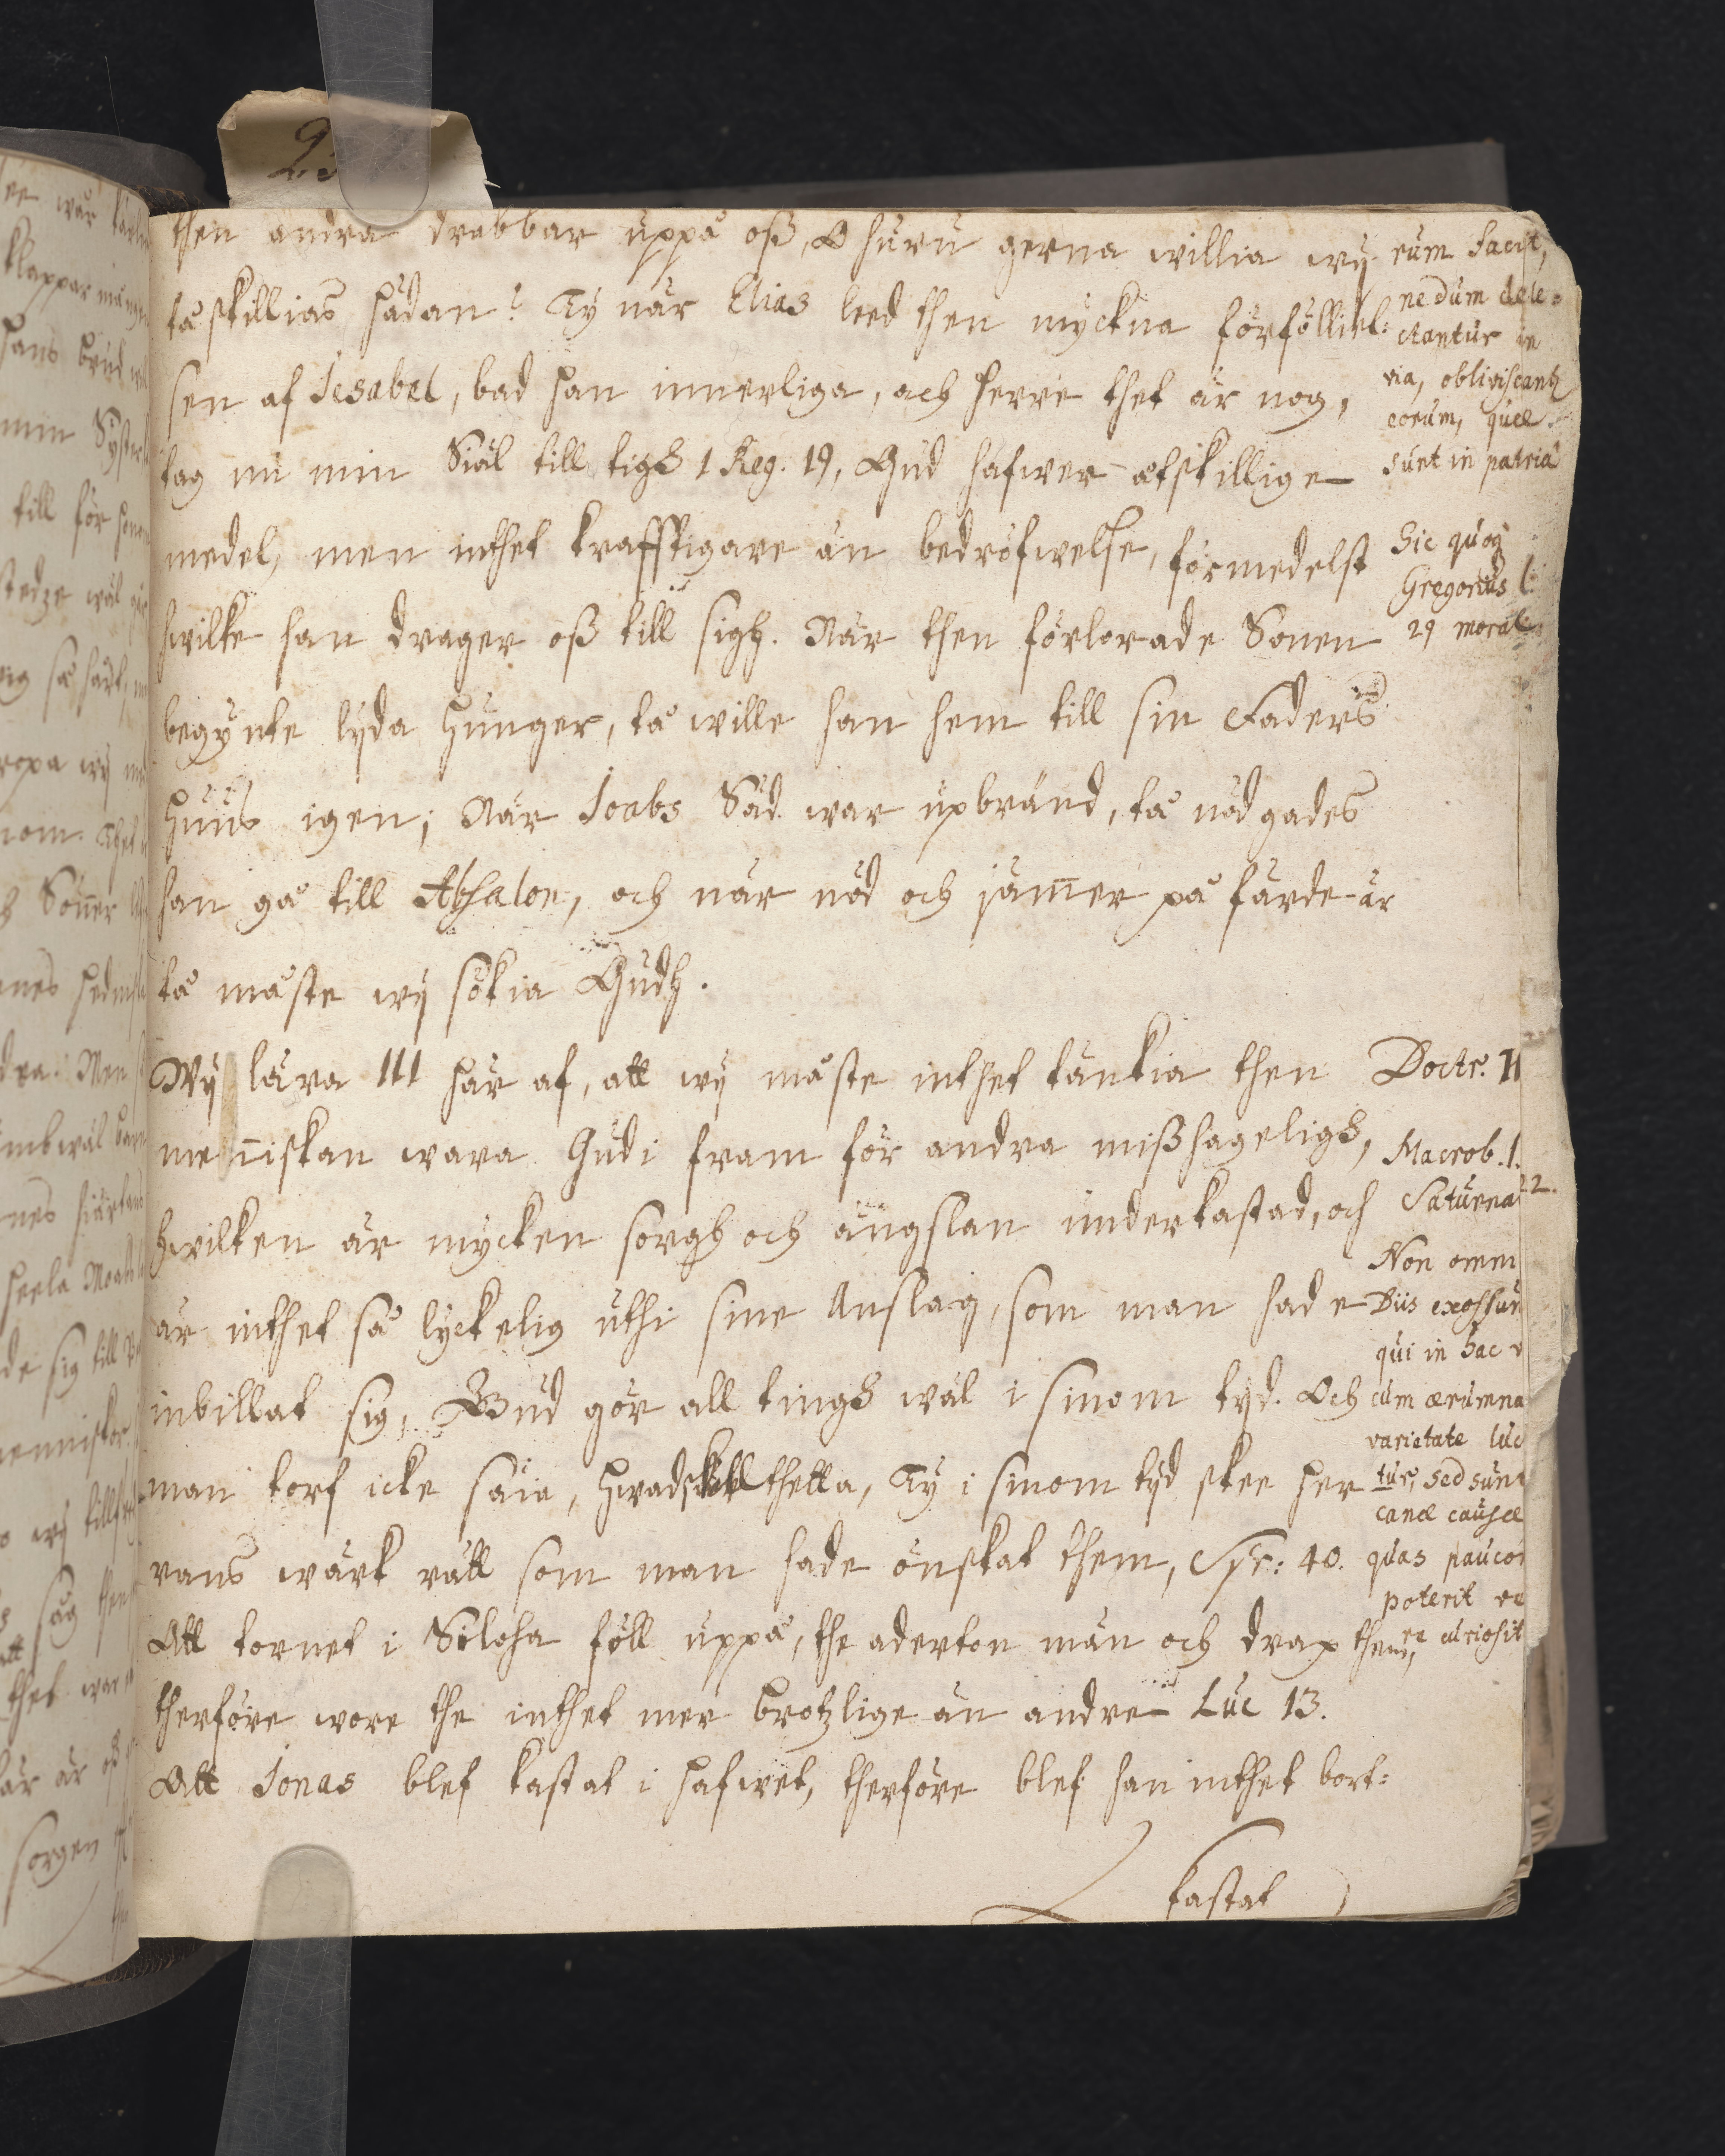 then andra drabbar uppå oß, O huru gerna willia wij
tå skillias hädan? Ty när Elias leed then myckna förfölliel:
sen af Jesabel, bad han innerliga, ach herre thet är nog,
tag nu min Siäl till tigh 1 Reg. 19, Gud hafwer åtskillige
medel, men inthet krafftigare än bedröfwelse, förmedelst
hwilke han drager oß till sigh. När then förlorade Sonen
begynte lyda hunger, tå wille han hem till sin Faders
huus igen; När Joabs Säd war upbränd, tå nödgades
han gå till Absalon, och när nöd och jam̅er på färde är
tå måste wij sökia Gudh.
Wij lära III här af, att wij måste inthet tänkia then
men̅iskan wara Gudi fram för andra mißhageligh,
hwilken är mycken sorgh och ängslan underkastad, och
är inthet så lyckelig uthi sine Anslag, som man hade
inbillat sig, Gud gör all tingh wäl i sinom tyd. Och
man torf icke säia, hwad skall thetta, Ty i sinom tyd skee her
rans wärk rätt som man hade önskat them, Syr: 40.
Att tornet i Siloha föll uppå, the aderton män och drap them,
therföre wore the inthet mer brotzlige än andre Luc 13.
Att Jonas blef kastat i hafwet, therföre blef han inthet bort:
kastat
eum facit,
ne dum dele:
ctantur in
via, obliviscantr
eorum, quæ
sunt in patria
Sic quoq
Gregorius l.
29 moral.
Doctr. II
Macrob. l.
Saturnal 2.
Non omni
Diis exossun
qui in hac v
cum ærumna
varietate luc
tur, sed sunt
canæ causæ
quas paucor
poterit
re curiosit